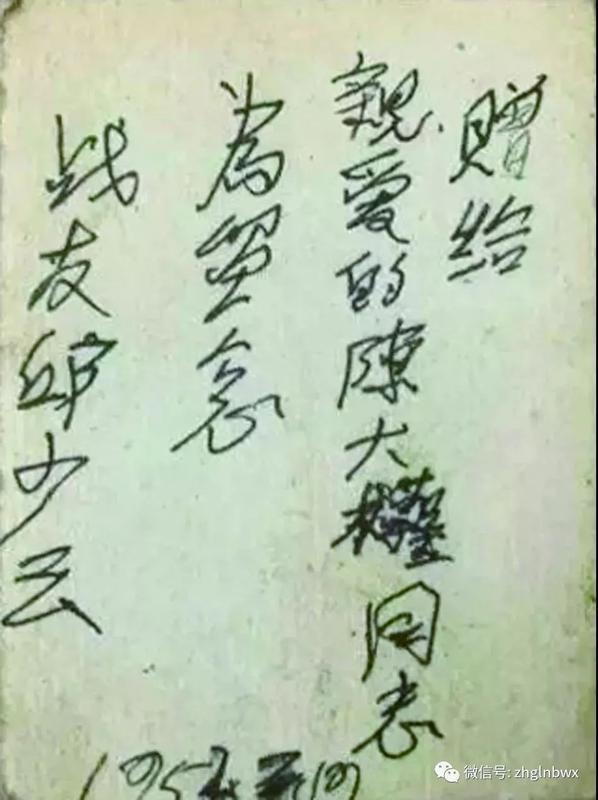 贈给
親爱的陳大權同志
為留念
战友邱少云
1952
微信号: zhglnbwx